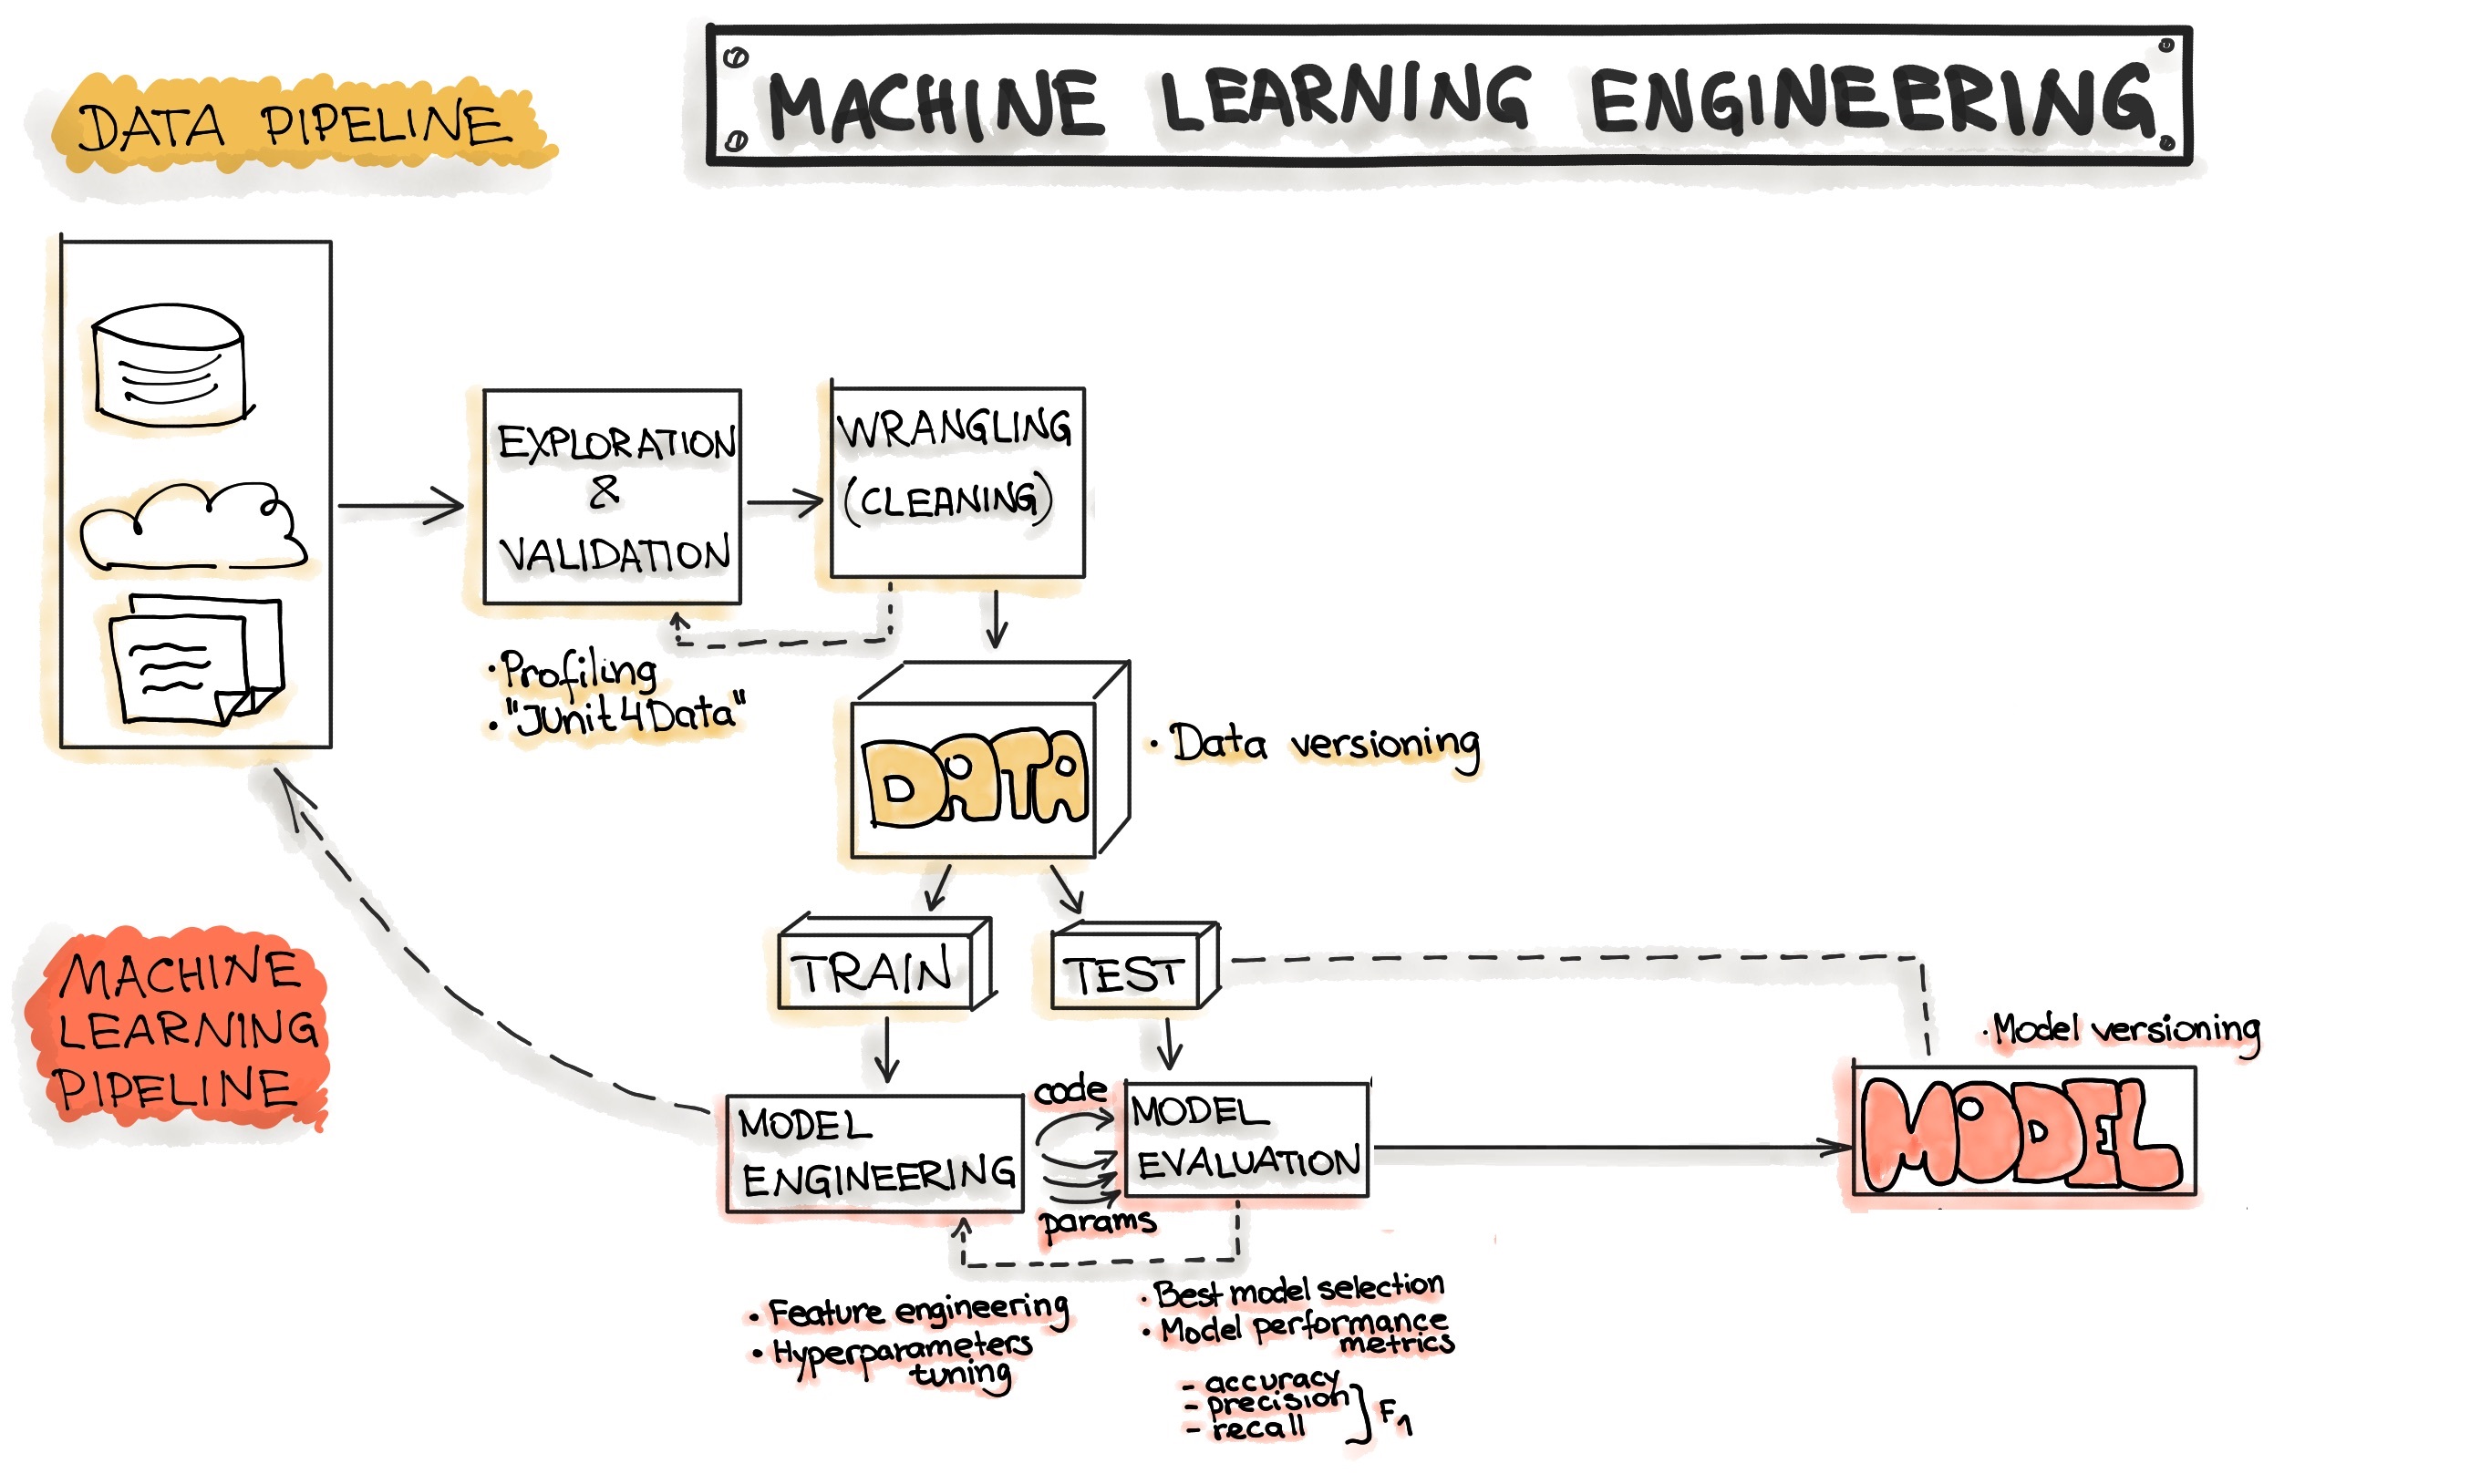 MACHINE LEARNING ENGINEERING
DATA PIPELINE
EXPLORATION
&
VALIDATION
WRANGLING
(CLEANING)
• Profiling
• "JUnit4Data"
DATA
• Data versioning
TRAIN
TEST
MACHINE
LEARNING
PIPELINE
MODEL
ENGINEERING
code
params
MODEL
EVALUATION
• Model versioning
MODEL
• Feature engineering
• Hyperparameters
tuning
• Best model selection
• Model performance
metrics
- accuracy
- precision
- recall
F1